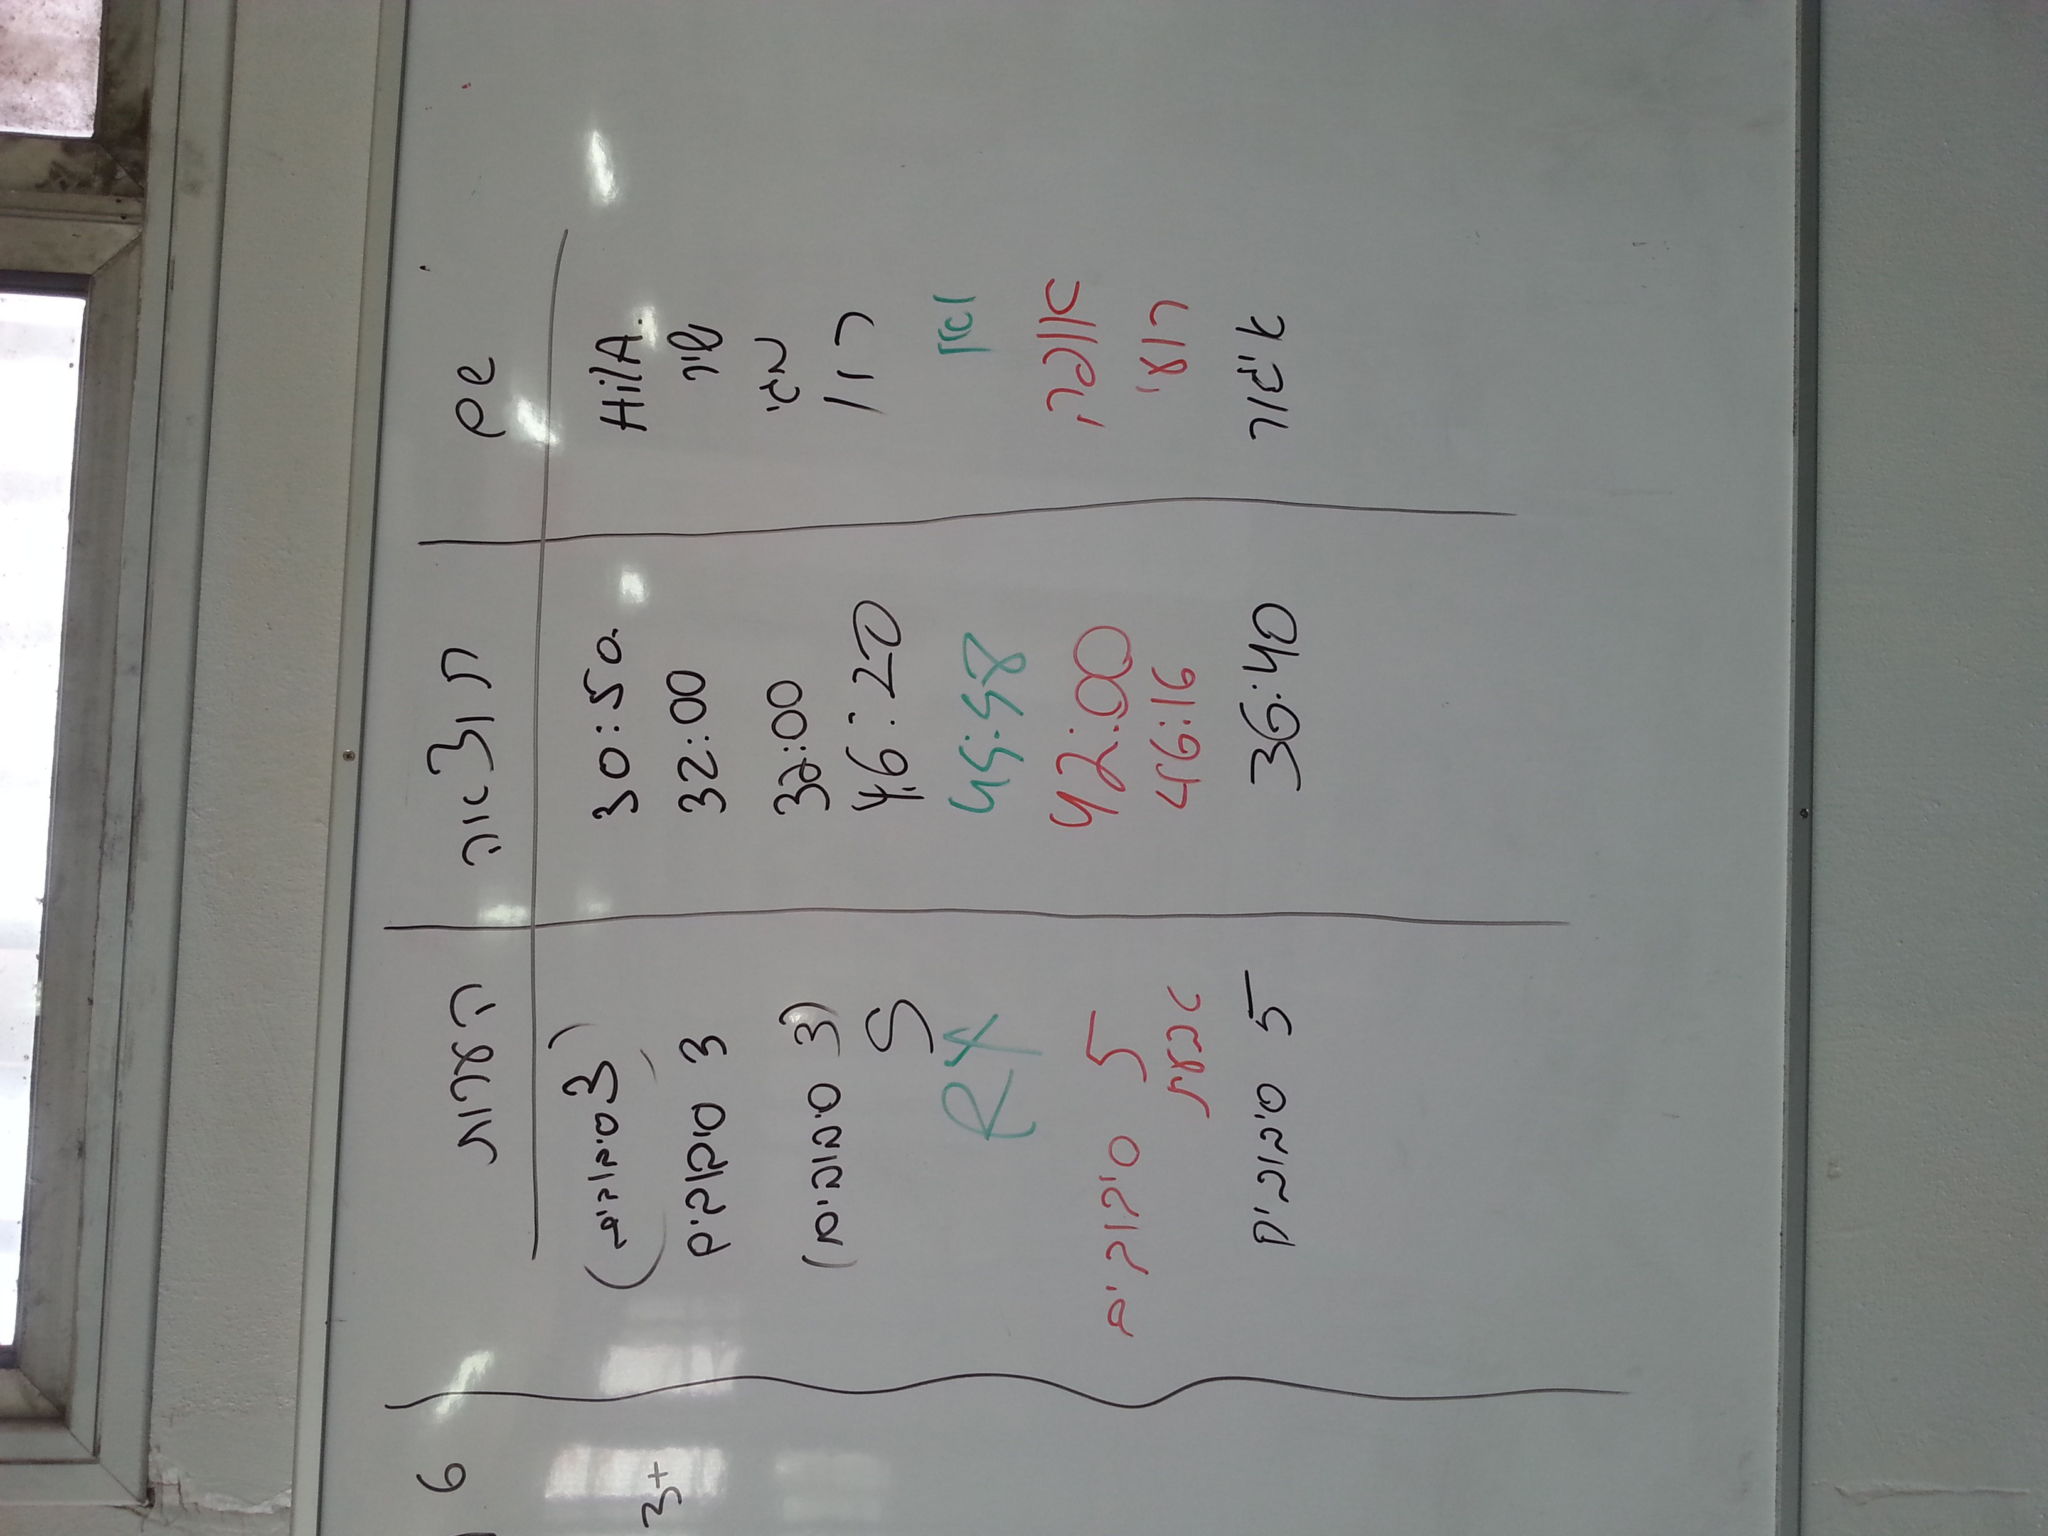 שם תוצאה הערות
HilA. 30:50 (3 סיבובים)
שיר 32:00 3 סיבובים
32:00 (3 סיבובים)
רון 46:20 5
45:58 RX
42:00 5 סיבובים
רועי 46:16
36:40 5 סיבובים
6
3+